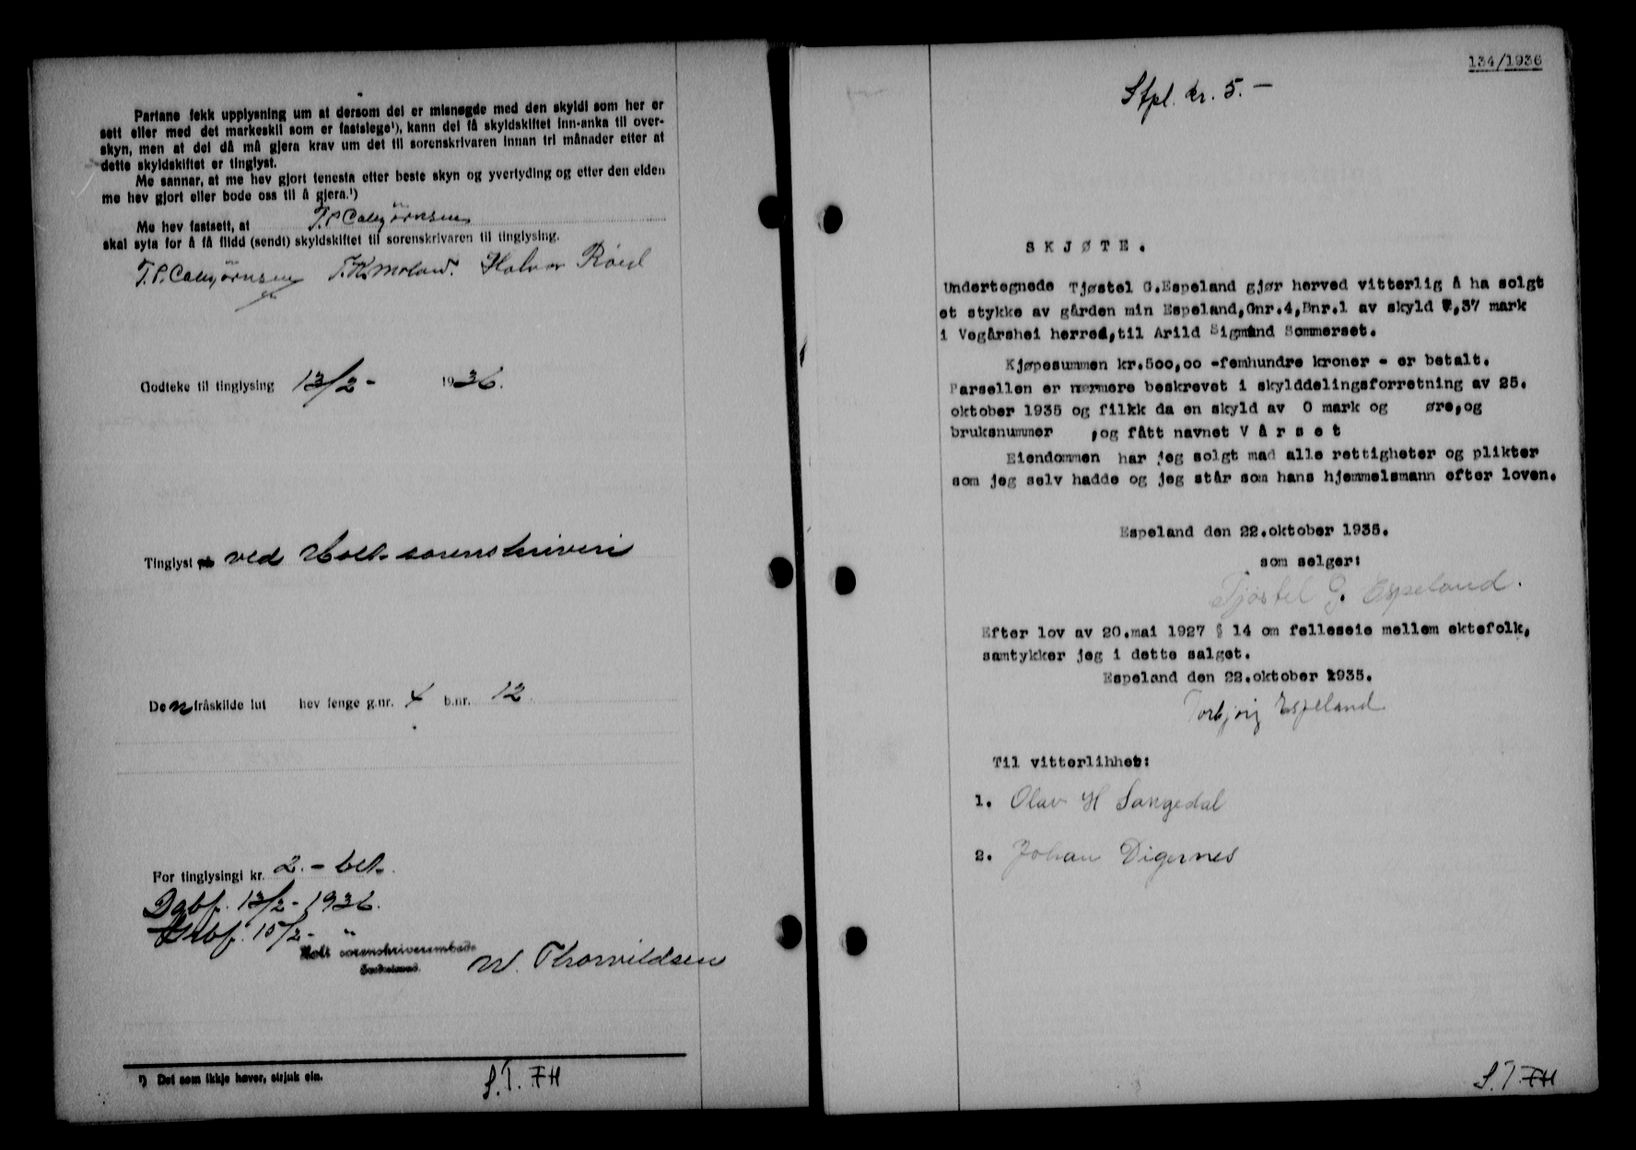 Partane fekk upplysning um at dersom dei er misnøgde med den skyldi som her er
sett eller med det markeskil som er fastslege¹), kann dei få skyldskiftet inn-anka til over-
skyn, men at dei då må gjera krav um det til sorenskrivaren innan tri månader etter at
dette skyldskiftet er tinglyst.
Me sannar, at me hev gjort tenesta etter beste skyn og yvertyding og etter den eiden
me hev gjort eller bode oss til å gjera.¹)
Me hev fastsett, at
skal syta for å få flidd (sendt) skyldskiftet til sorenskrivaren til tinglysing.
T. K. Moland. Halvor
Godteke til tinglysing 13/2 - 1936.
Tinglyst ved Holt sorenskriveri
Den fråskilde lut hev fenge g.nr. 4 b.nr. 12
For tinglysingi kr. 2.- bet.
Dgbf. 13/2 - 1936.
15/2 - "
Holt sorenskriverembede
W. Thorvildsen
¹) Det som ikkje høver, strjuk ein.
S.T. FH
134/1936
Stpl. kr. 5.-
SKJØTE.
Undertegnede Tjøstel G.Espeland gjør herved vitterlig å ha solgt
et stykke av gården min Espeland,Gnr.4,Bnr.1 av skyld ,37 mark
i Vegårshei herred,til Arild Sigmund Sommerset.
Kjøpesummen kr.500,00 -femhundre kroner - er betalt.
Parsellen er nærmere beskrevet i skylddelingsforretning av 25.
oktober 1935 og filkk da en skyld av 0 mark og øre,og
bruksnummer ,og fått navnet V å r s e t
Eiendommen har jeg solgt mad alle rettigheter og plikter
som jeg selv hadde og jeg står som hans hjemmelsmann efter loven.
Espeland den 22.oktober 1935.
som selger:
Tjøstel G. Espeland.
Efter lov av 20.mai 1927 § 14 om felleseie mellem ektefolk,
samtykker jeg i dette salget.
Espeland den 22.oktober 1935.
Torbjørg Espeland
Til vitterlihhet:
1. Olav H Songedal
2. Johan Digernes
S.T. FH